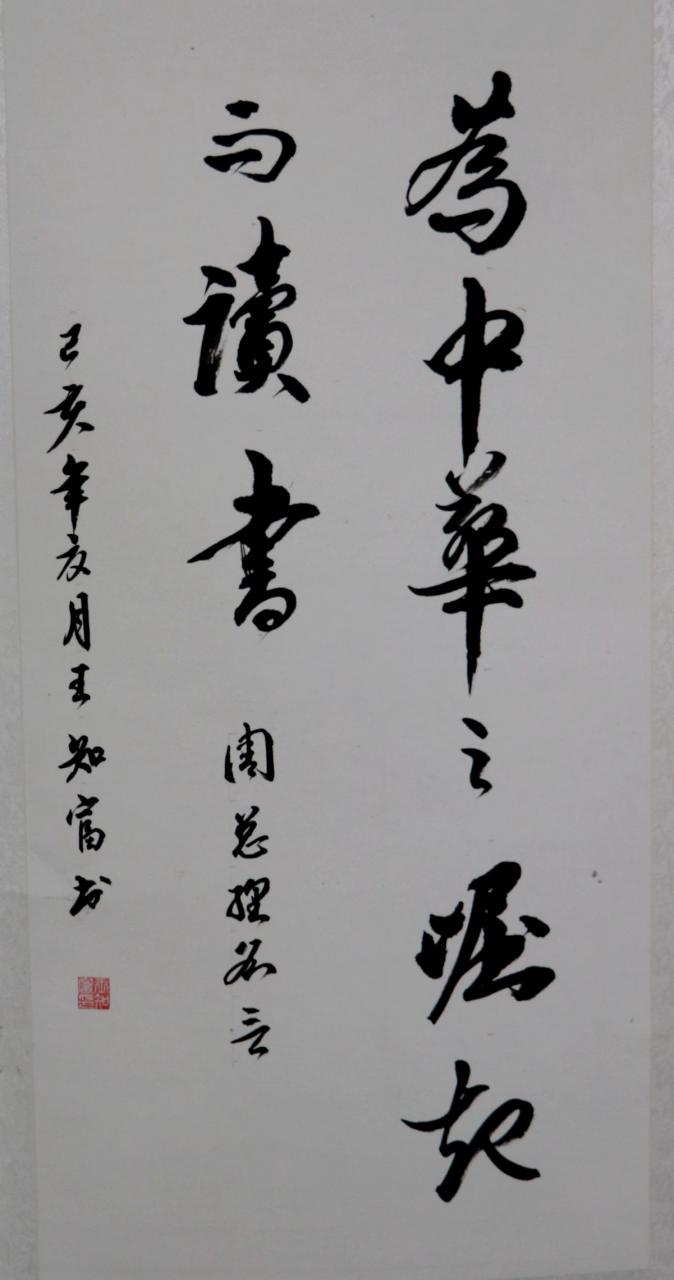 為中華之崛起
而讀書 周总理名言
己亥年亥月王知富书